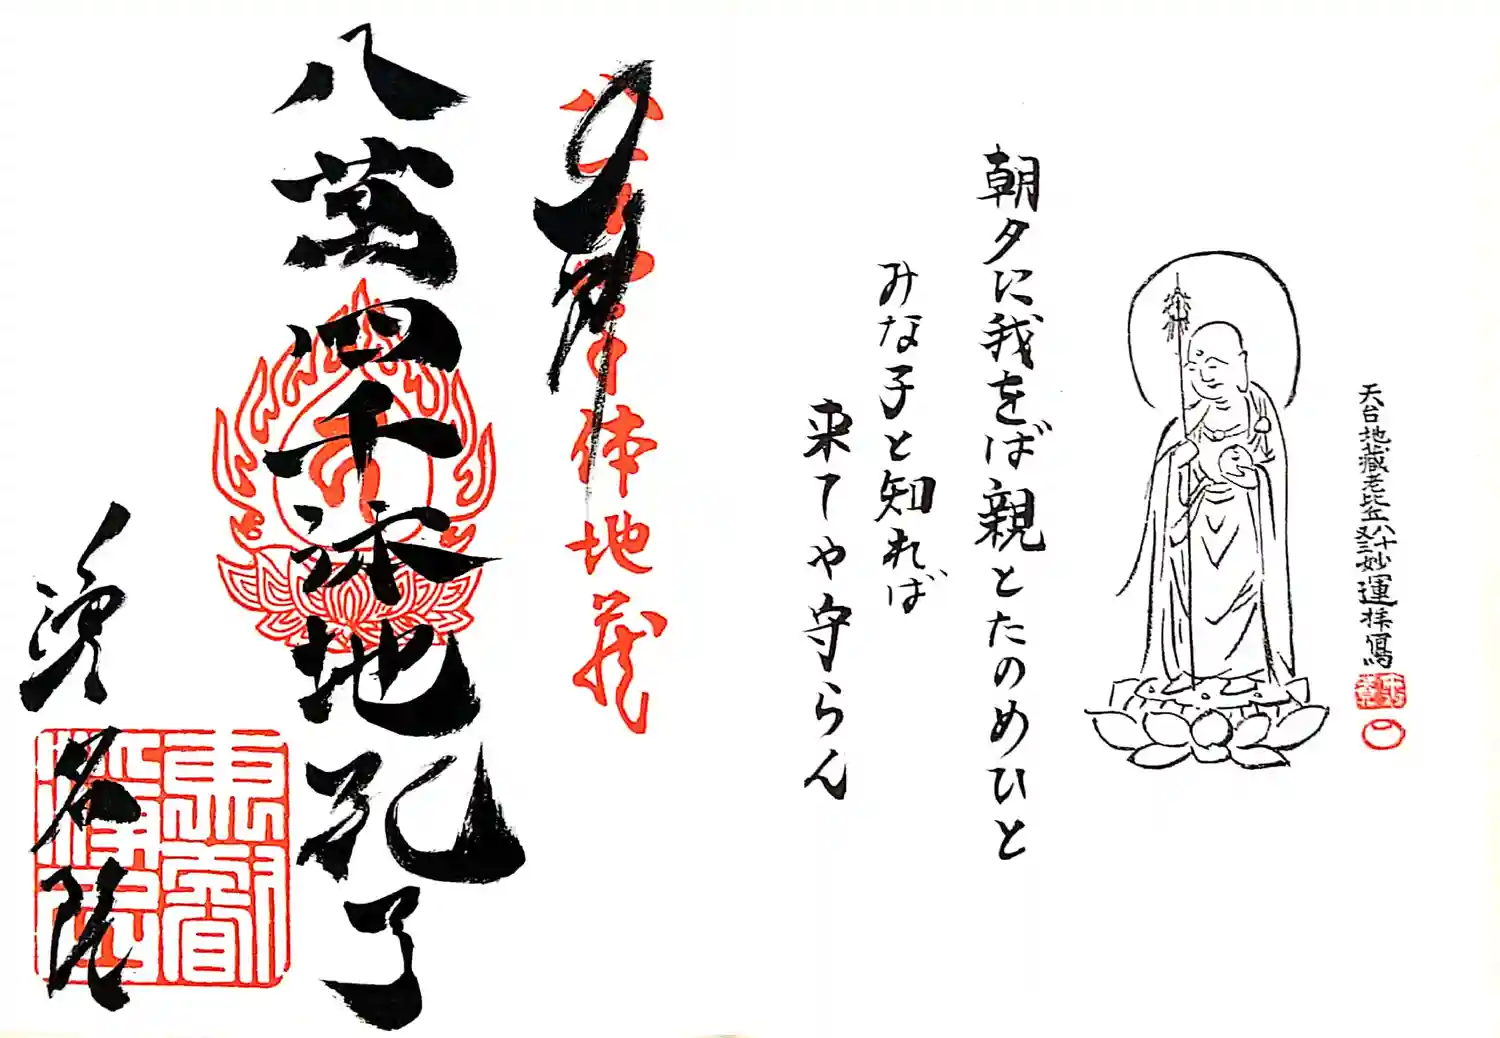 天台地藏老比丘八十又三妙運拝寫
朝夕に我をば親とたのめひと
みな子と知れば
来てや守らん
奉拝
八萬四千体地蔵尊
浄名院